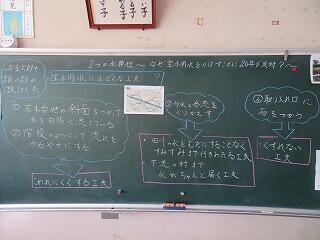 2つの水神社〜なぜ宝木用水をのばすことに20年も反対?〜
設計した
宝木用水にはどんな工夫?
①宝木台地の斜面をつかって
水を自然に流している
②階段のようにして流れを
ゆるやかにする
こわれにくくする工夫
③分水と合流を
くりかえす
・田川の水をむだにすることなく
すみずみまで行きわたる工夫
・下流の村まで
水がちゃんと届く工夫
④取り入れ口に
石をつかう
くずれない
工夫